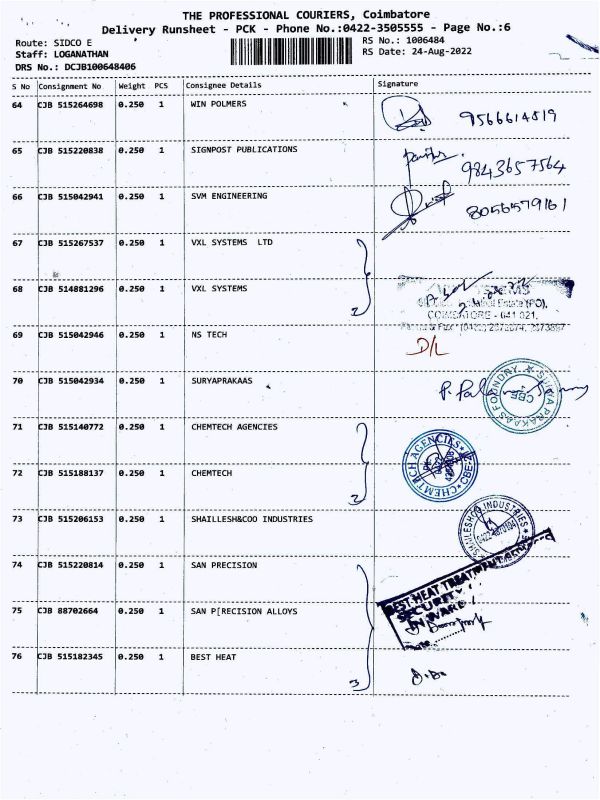 THE PROFESSIONAL COURIERS, Coimbatore
Delivery Runsheet - PCK - Phone No.:0422-3505555 - Page No.:6
Route: SIDCO E
Staff: LOGANATHAN
DRS No.: DCJB100648406
RS No.: 1006484
RS Date: 24-Aug-2022
S No Consignment No Weight PCS Consignee Details Signature
64 CJB 515264698 0.250 1 WIN POLMERS 9566614819
65 CJB 515220838 0.250 1 SIGNPOST PUBLICATIONS 9843657564
66 CJB 515042941 0.250 1 SVM ENGINEERING 8056579161
67 CJB 515267537 0.250 1 VXL SYSTEMS LTD
68 CJB 514881296 0.250 1 VXL SYSTEMS 2
Estate (PO),
COIMBATORE - 641 021,
69 CJB 515042946 0.250 1 NS TECH D/L
70 CJB 515042934 0.250 1 SURYAPRAKAAS
SURYA PRAKAAS FOUNDRY
CBE
71 CJB 515140772 0.250 1 CHEMTECH AGENCIES
CHEMTECH AGENCIES
72 CJB 515188137 0.250 1 CHEMTECH 2
73 CJB 515206153 0.250 1 SHAILLESH&COO INDUSTRIES
INDUSTRIES
74 CJB 515220814 0.250 1 SAN PRECISION
BEST HEAT TREATMENT SERVICE
SECURITY
INWARD
75 CJB 88702664 0.250 1 SAN P[RECISION ALLOYS
76 CJB 515182345 0.250 1 BEST HEAT 3